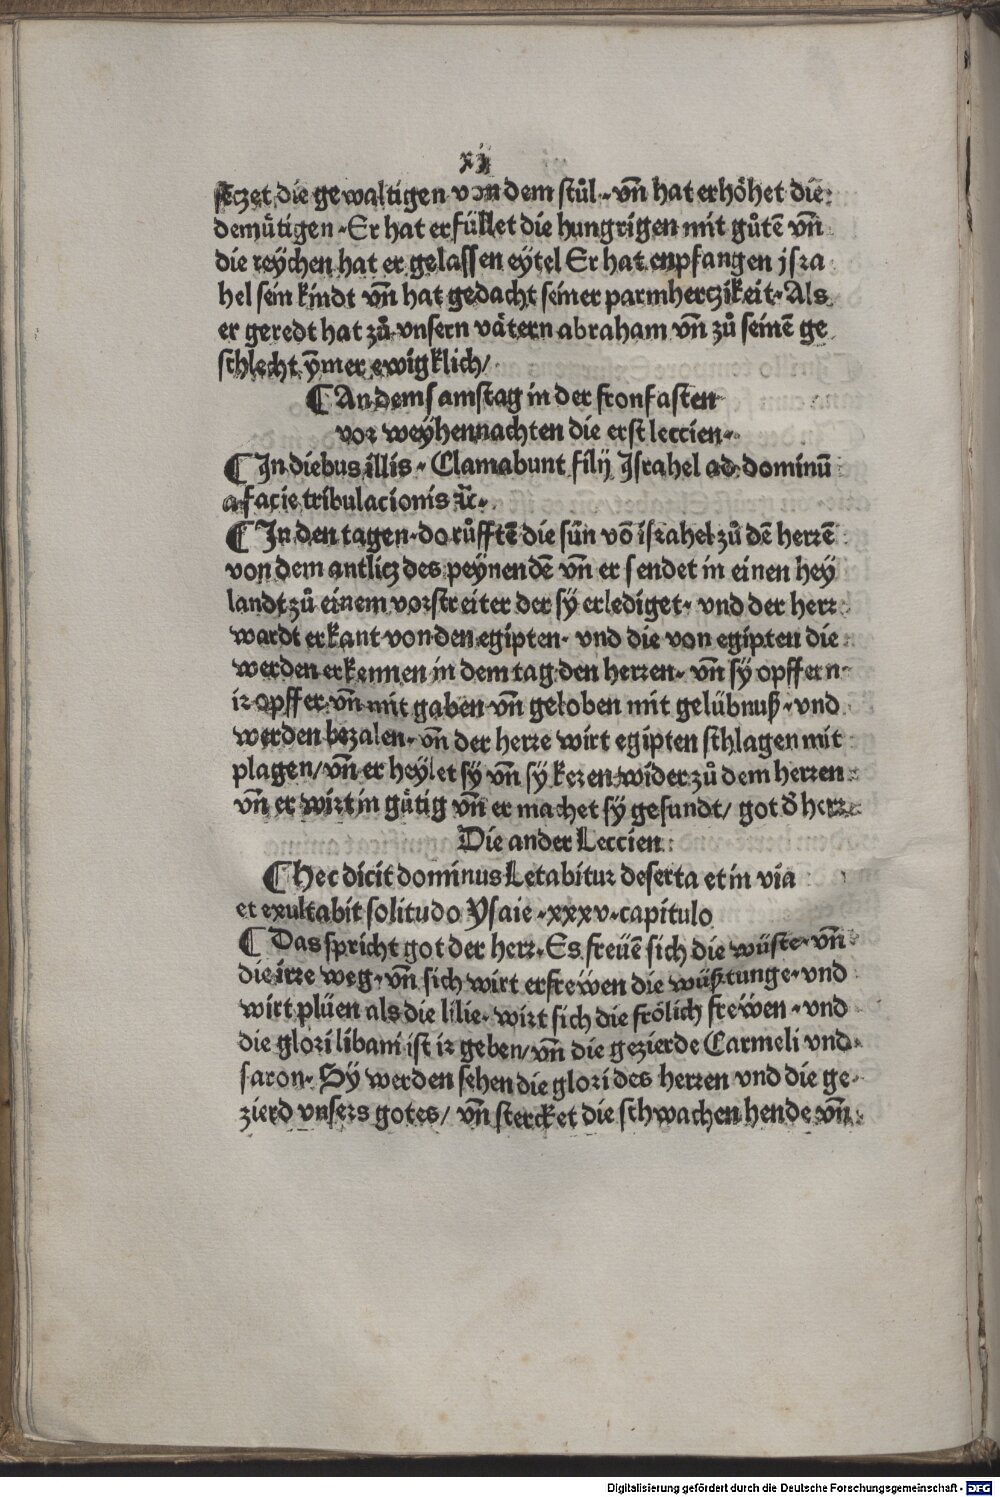 xj
seczet die gewaltigen von dem stůl· vñ hat erhöhet die
demütigen·Er hat erfüllet die hungrigen mit gůtē vñ
die reÿchen hat er gelassen eÿtel Er hat enpfangen jsra
hel sein kindt vñ hat gedacht seiner parmherczikeit·Als
er geredt hat zů vnsern vätern abraham vñ zů seinē ge
schlecht ÿmer ewigklich/
¶ An dem samstag in der fronfasten
vor weÿhennachten die erst leccien·
¶ In diebus illis· Clamabunt filij Israhel ad dominū
a facie tribulacionis ꝛc̃·
¶ In den tagen·do růfftē die sün vō israhel zů dē herrē
von dem antlicz des peÿnendē vñ er sendet in einen heÿ
landt zů einem vorstreiter der sÿ erlediget· vnd der herr
wardt erkant von den egipten· vnd die von egipten die
werden erkennen in dem tag den herren· vñ sÿ opffern
ir opffer·vñ mit gaben vñ geloben mit gelübnuß·vnd
werden bezalen· vñ der herre wirt egipten schlagen mit
plagen/vñ er heÿlet sÿ vñ sÿ keren wider zů dem herren
vñ er wirt in gütig vñ er machet sÿ gesundt/ got d̄ herr
Die ander Leccien
¶ Hec dicit dominus Letabitur deserta et in via
et exultabit solitudo Ysaie·xxxv·capitulo
¶ Das spricht got der herr·Es freüē sich die wüste·vñ
die irre weg·vñ sich wirt erfrëwen die wüßtunge·vnd
wirt plüen als die lilie·wirt sich die frölich frëwen·vnd
die glori libani ist ir geben/vñ die gezierde Carmeli vnd
saron·Sÿ werden sehen die glori des herren vnd die ge
zierd vnsers gotes/ vñ stercket die schwachen hende vñ
Digitalisierung gefördert durch die Deutsche Forschungsgemeinschaft - DFG